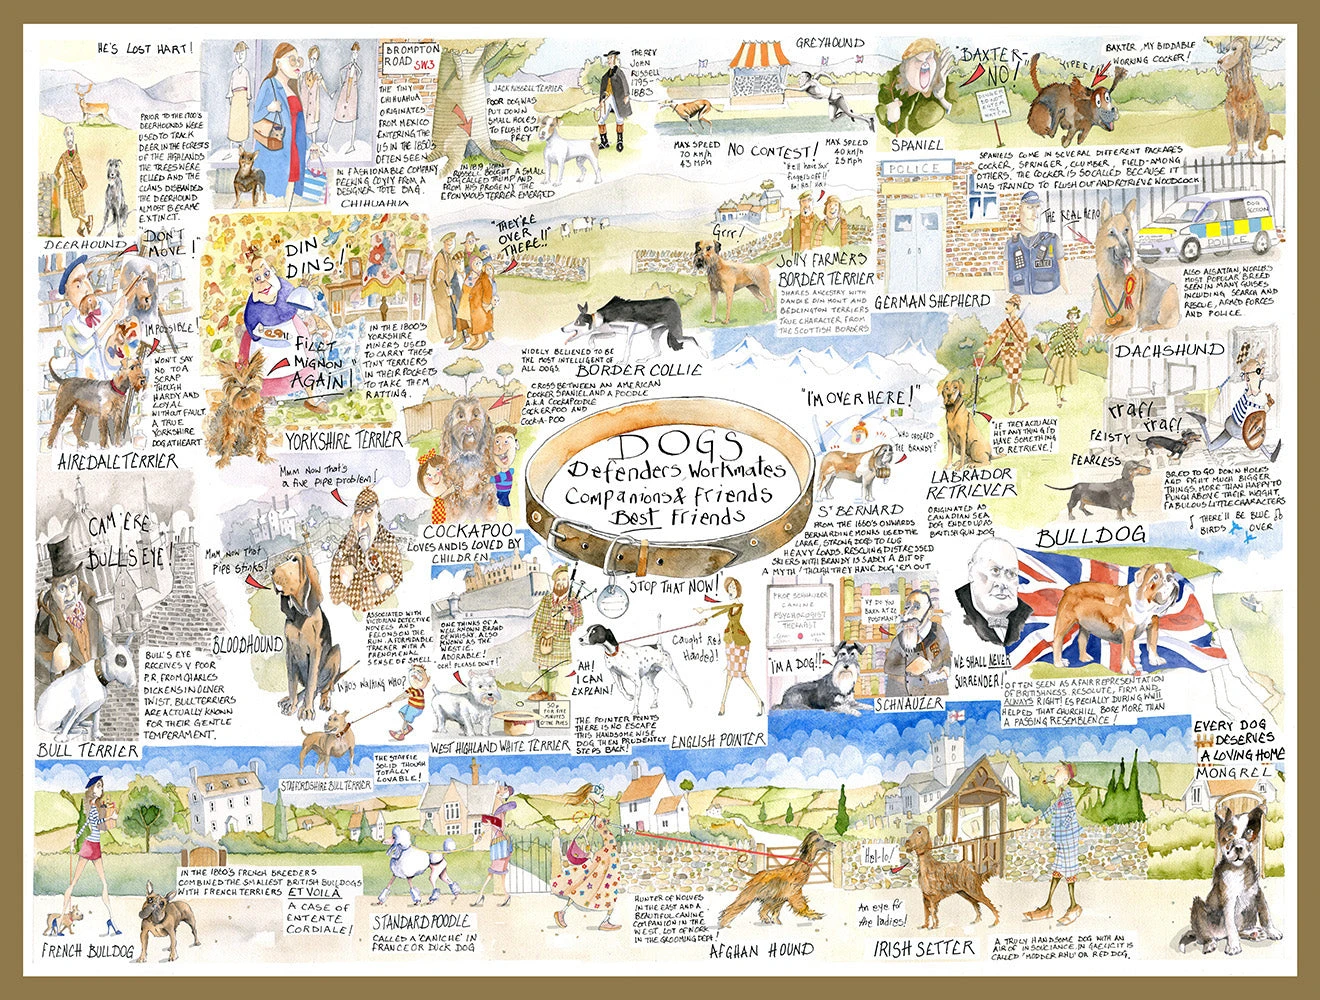 HE'S LOST HART!
PRIOR TO THE 1700'S
DEERHOUNDS WERE
USED TO TRACK
DEER IN THE FORESTS
OF THE HIGHLANDS
THE TREES WERE
FELLED AND THE
CLANS DISBANDED
THE DEERHOUND
ALMOST BECAME
EXTINCT.
DEERHOUND
BROMPTON
ROAD SW3
THE TINY
CHIHUAHUA
ORIGINATES
FROM MEXICO
ENTERING THE
US IN THE 1850s
OFTEN SEEN
IN FASHIONABLE COMPANY
PEEKING COYLY FROM A
DESIGNER TOTE BAG.
CHIHUAHUA
JACK RUSSELL TERRIER
POOR DOG WAS
PUT DOWN
SMALL HOLES
TO FLUSH OUT
PREY
THE REV
JOHN
RUSSELL
1795-
1883
IN 1819 JOHN
RUSSELL BOUGHT A SMALL
DOG CALLED TRUMP AND
FROM HIS PROGENY THE
EPONYMOUS TERRIER EMERGED
GREYHOUND
MAX SPEED
70 Km/h
43 MPH
NO CONTEST!
MAX SPEED
40 Km/h
25 MPH
"BAXTER-
NO!"
YIPEE!
BAXTER, MY BIDDABLE
WORKING COCKER!
SPANIEL
SPANIELS COME IN SEVERAL DIFFERENT PACKAGES
COCKER, SPRINGER, CLUMBER, FIELD-AMONG
OTHERS. THE COCKER IS SO CALLED BECAUSE IT
WAS TRAINED TO FLUSH OUT AND RETRIEVE WOODCOCK
"DON'T
MOVE!"
"IMPOSSIBLE!
WON'T SAY
NO TO A
SCRAP
THOUGH
HARDY AND
LOYAL
WITHOUT FAULT.
A TRUE
YORKSHIRE
DOG AT HEART
AIREDALE TERRIER
"DIN
DINS!"
"FILET
MIGNON
AGAIN!"
IN THE 1800'S
YORKSHIRE
MINERS USED
TO CARRY THESE
TINY TERRIERS
IN THEIR POCKETS
TO TAKE THEM
RATTING.
YORKSHIRE TERRIER
"THEY'RE
OVER
THERE!!"
WIDELY BELIEVED TO BE
THE MOST INTELLIGENT OF
ALL DOGS.
BORDER COLLIE
Grrr!
JOLLY FARMERS
BORDER TERRIER
SHARES ANCESTRY WITH
DANDIE DINMONT AND
BEDLINGTON TERRIERS
TRUE CHARACTER FROM
THE SCOTTISH BORDERS
POLICE
GERMAN SHEPHERD
THE REAL HERO
DOG
SECTION
POLICE
ALSO ALSATIAN, WORLD'S
MOST POPULAR BREED
SEEN IN MANY GUISES
INCLUDING SEARCH AND
RESCUE, ARMED FORCES
AND POLICE.
CROSS BETWEEN AN AMERICAN
COCKER SPANIEL AND A POODLE
A.K.A COCKAPOODLE
COCKERPOO AND
COCK-A-POO
COCKAPOO
LOVES AND IS LOVED BY
CHILDREN
DOGS
Defenders, Workmates
Companions & Friends
Best Friends
"I'M OVER HERE!"
"WHO ORDERED
THE BRANDY?"
ST BERNARD
FROM THE 1660'S ONWARDS
BERNARDINE MONKS USED THE
LARGE, STRONG DOG TO LUG
HEAVY LOADS. RESCUING DISTRESSED
SKIERS WITH BRANDY IS SADLY A BIT OF
A MYTH! THOUGH THEY HAVE DUG 'EM OUT
"IF THEY ACTUALLY
HIT ANYTHING I'D
HAVE SOMETHING
TO RETRIEVE!
LABRADOR
RETRIEVER
ORIGINATED AS
CANADIAN SEA
DOG, ENDED UP AS
BRITISH GUN DOG
DACHSHUND
rraf!
rraf!
FEISTY
FEARLESS
BRED TO GO DOWN HOLES
AND FIGHT MUCH BIGGER
THINGS, MORE THAN HAPPY TO
PUNCH ABOVE THEIR WEIGHT,
FABULOUS LITTLE CHARACTERS
THERE'LL BE BLUE
BIRDS OVER
"CAM 'ERE
BULLSEYE!"
BULL'S EYE
RECEIVES V POOR
P.R. FROM CHARLES
DICKENS IN OLIVER
TWIST. BULL TERRIERS
ARE ACTUALLY KNOWN
FOR THEIR GENTLE
TEMPERAMENT.
BULL TERRIER
Mmm Now that's
a five pipe problem!
Mmm Now that
Pipe stinks!
BLOODHOUND
ASSOCIATED WITH
VICTORIAN DETECTIVE
NOVELS AND
FELONS ON THE
RUN. A FORMIDABLE
TRACKER WITH A
PHENOMENAL
SENSE OF SMELL.
WHO'S WALKING WHO?
STAFFORDSHIRE BULL TERRIER
THE STAFFIE
SOLID THOUGH
TOTALLY
LOVABLE!
ONE THINKS OF A
WELL KNOWN BRAND
OF WHISKY. ALSO
KNOWN AS THE
WESTIE.
ADORABLE!
OCH! PLEASE DON'T!
50p
FOR FIVE
MINUTES
WEST HIGHLAND WHITE TERRIER
"STOP THAT NOW!"
Caught Red
Handed!
AH!
I CAN
EXPLAIN!
THE POINTER POINTS
THERE IS NO ESCAPE
THIS HANDSOME WISE
DOG THEN PRUDENTLY
STEPS BACK!
ENGLISH POINTER
PROF SCHNAUZER
CANINE
PSYCHOLOGIST
THERAPIST
VY DO YOU
BARK AT ZE
POSTMAN?
"I'M A DOG!!"
SCHNAUZER
BULLDOG
WE SHALL NEVER
SURRENDER!
OFTEN SEEN AS A FAIR REPRESENTATION
OF BRITISHNESS. RESOLUTE, FIRM AND
ALWAYS RIGHT! ESPECIALLY DURING WWII
HELPED THAT CHURCHILL BORE MORE THAN
A PASSING RESEMBLENCE!
EVERY DOG
DESERVES
A LOVING HOME
MONGREL
IN THE 1860'S FRENCH BREEDERS
COMBINED THE SMALLEST BRITISH BULLDOGS
WITH FRENCH TERRIERS ET VOILA
A CASE OF
ENTENTE
CORDIALE!
FRENCH BULLDOG
STANDARD POODLE
CALLED A 'CANICHE' IN
FRANCE OR DUCK DOG
HUNTER OF WOLVES
IN THE EAST AND A
BEAUTIFUL CANINE
COMPANION IN THE
WEST. LOT OF WORK
IN THE GROOMING DEPT!
AFGHAN HOUND
Hel-lo!
An eye for
the ladies!
IRISH SETTER
A TRULY HANDSOME DOG WITH AN
AIR OF INSOUCIANCE. IN GAELIC IT IS
CALLED 'MODDER RHU' OR RED DOG.